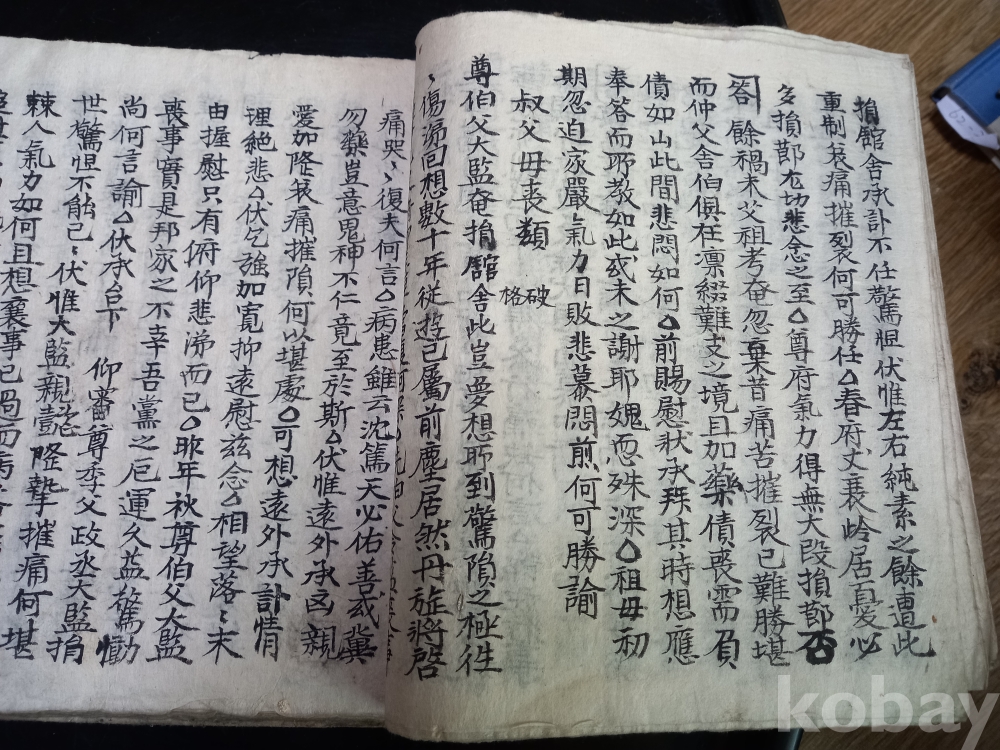 捐舘舍承訃不任驚怛伏惟左右純素之餘遭此
重制哀痛摧裂何可勝任△春府丈衰岭居憂必
多損節尤切悲念之至△尊府氣力得無大段損節否
答 餘禍未父祖考奄忽棄背痛苦摧裂已難勝堪
而仲父舍伯俱在凜綴難支之境且加藥債喪需負
債如山此間悲悶如何△前賜慰狀承拜其時想應
奉答而所敎如此或未之謝耶媿悤殊深△祖母初
期忽迫家嚴氣力日敗悲慕悶煎何可勝諭
叔父母喪類
破格
尊伯父大監奄捐舘舍此豈夢想所到驚隕之極徃
〻傷涕回想數十年從遊已屬前塵居然丹旋將啓
痛哭〻復夫何言△病患雖云沈篤天必佑善或冀
勿藥豈意鬼神不仁竟至於斯△伏惟遠外承凶親
愛加隆哀痛摧隕何以堪處△可想遠外承訃情
理絶悲△伏乞強加寬抑遠慰玆念△相望落〻末
由握慰只有俯仰悲涕而已△昨年秋尊伯父大監
喪事實是邦家之不幸吾黨之厄運久益驚慟
尚何言諭△伏承台下 仰審尊季父政丞大監捐
世驚怛不能已〻伏惟大監親懿隆摯摧痛何堪
棘人氣力如何且想襄事已過而病
kobay